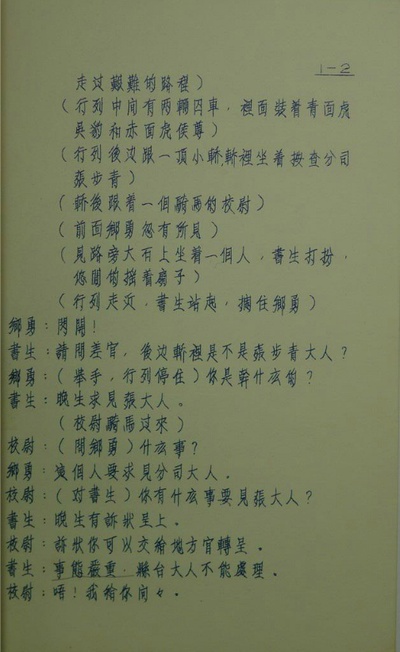 1-2
走过艱難的路程）
（行列中间有两輛囚車，裡面裝着青面虎
吳豹和赤面虎侯尊）
（行列後边跟一頂小轎，轎裡坐着按查分司
張步青）
（轎後跟着一個騎馬的校尉）
（前面鄉勇忽有所見）
（見路旁大石上坐着一個人，書生打扮，
悠閒的搖着扇子）
（行列走近，書生站起，攔住鄉勇）
鄉勇：閃開！
書生：請問差官，後边轎裡是不是張步青大人？
鄉勇：（举手，行列停住）你是幹什么的？
書生：晚生求見張大人。
（校尉騎馬过來）
校尉：（問鄉勇）什么事？
鄉勇：這個人要求見分司大人。
校尉：（对書生）你有什么事要見張大人？
書生：晚生有訴狀呈上。
校尉：訴狀你可以交給地方官轉呈。
書生：事態嚴重，縣台大人不能處理。
校尉：唔！我给你问々。